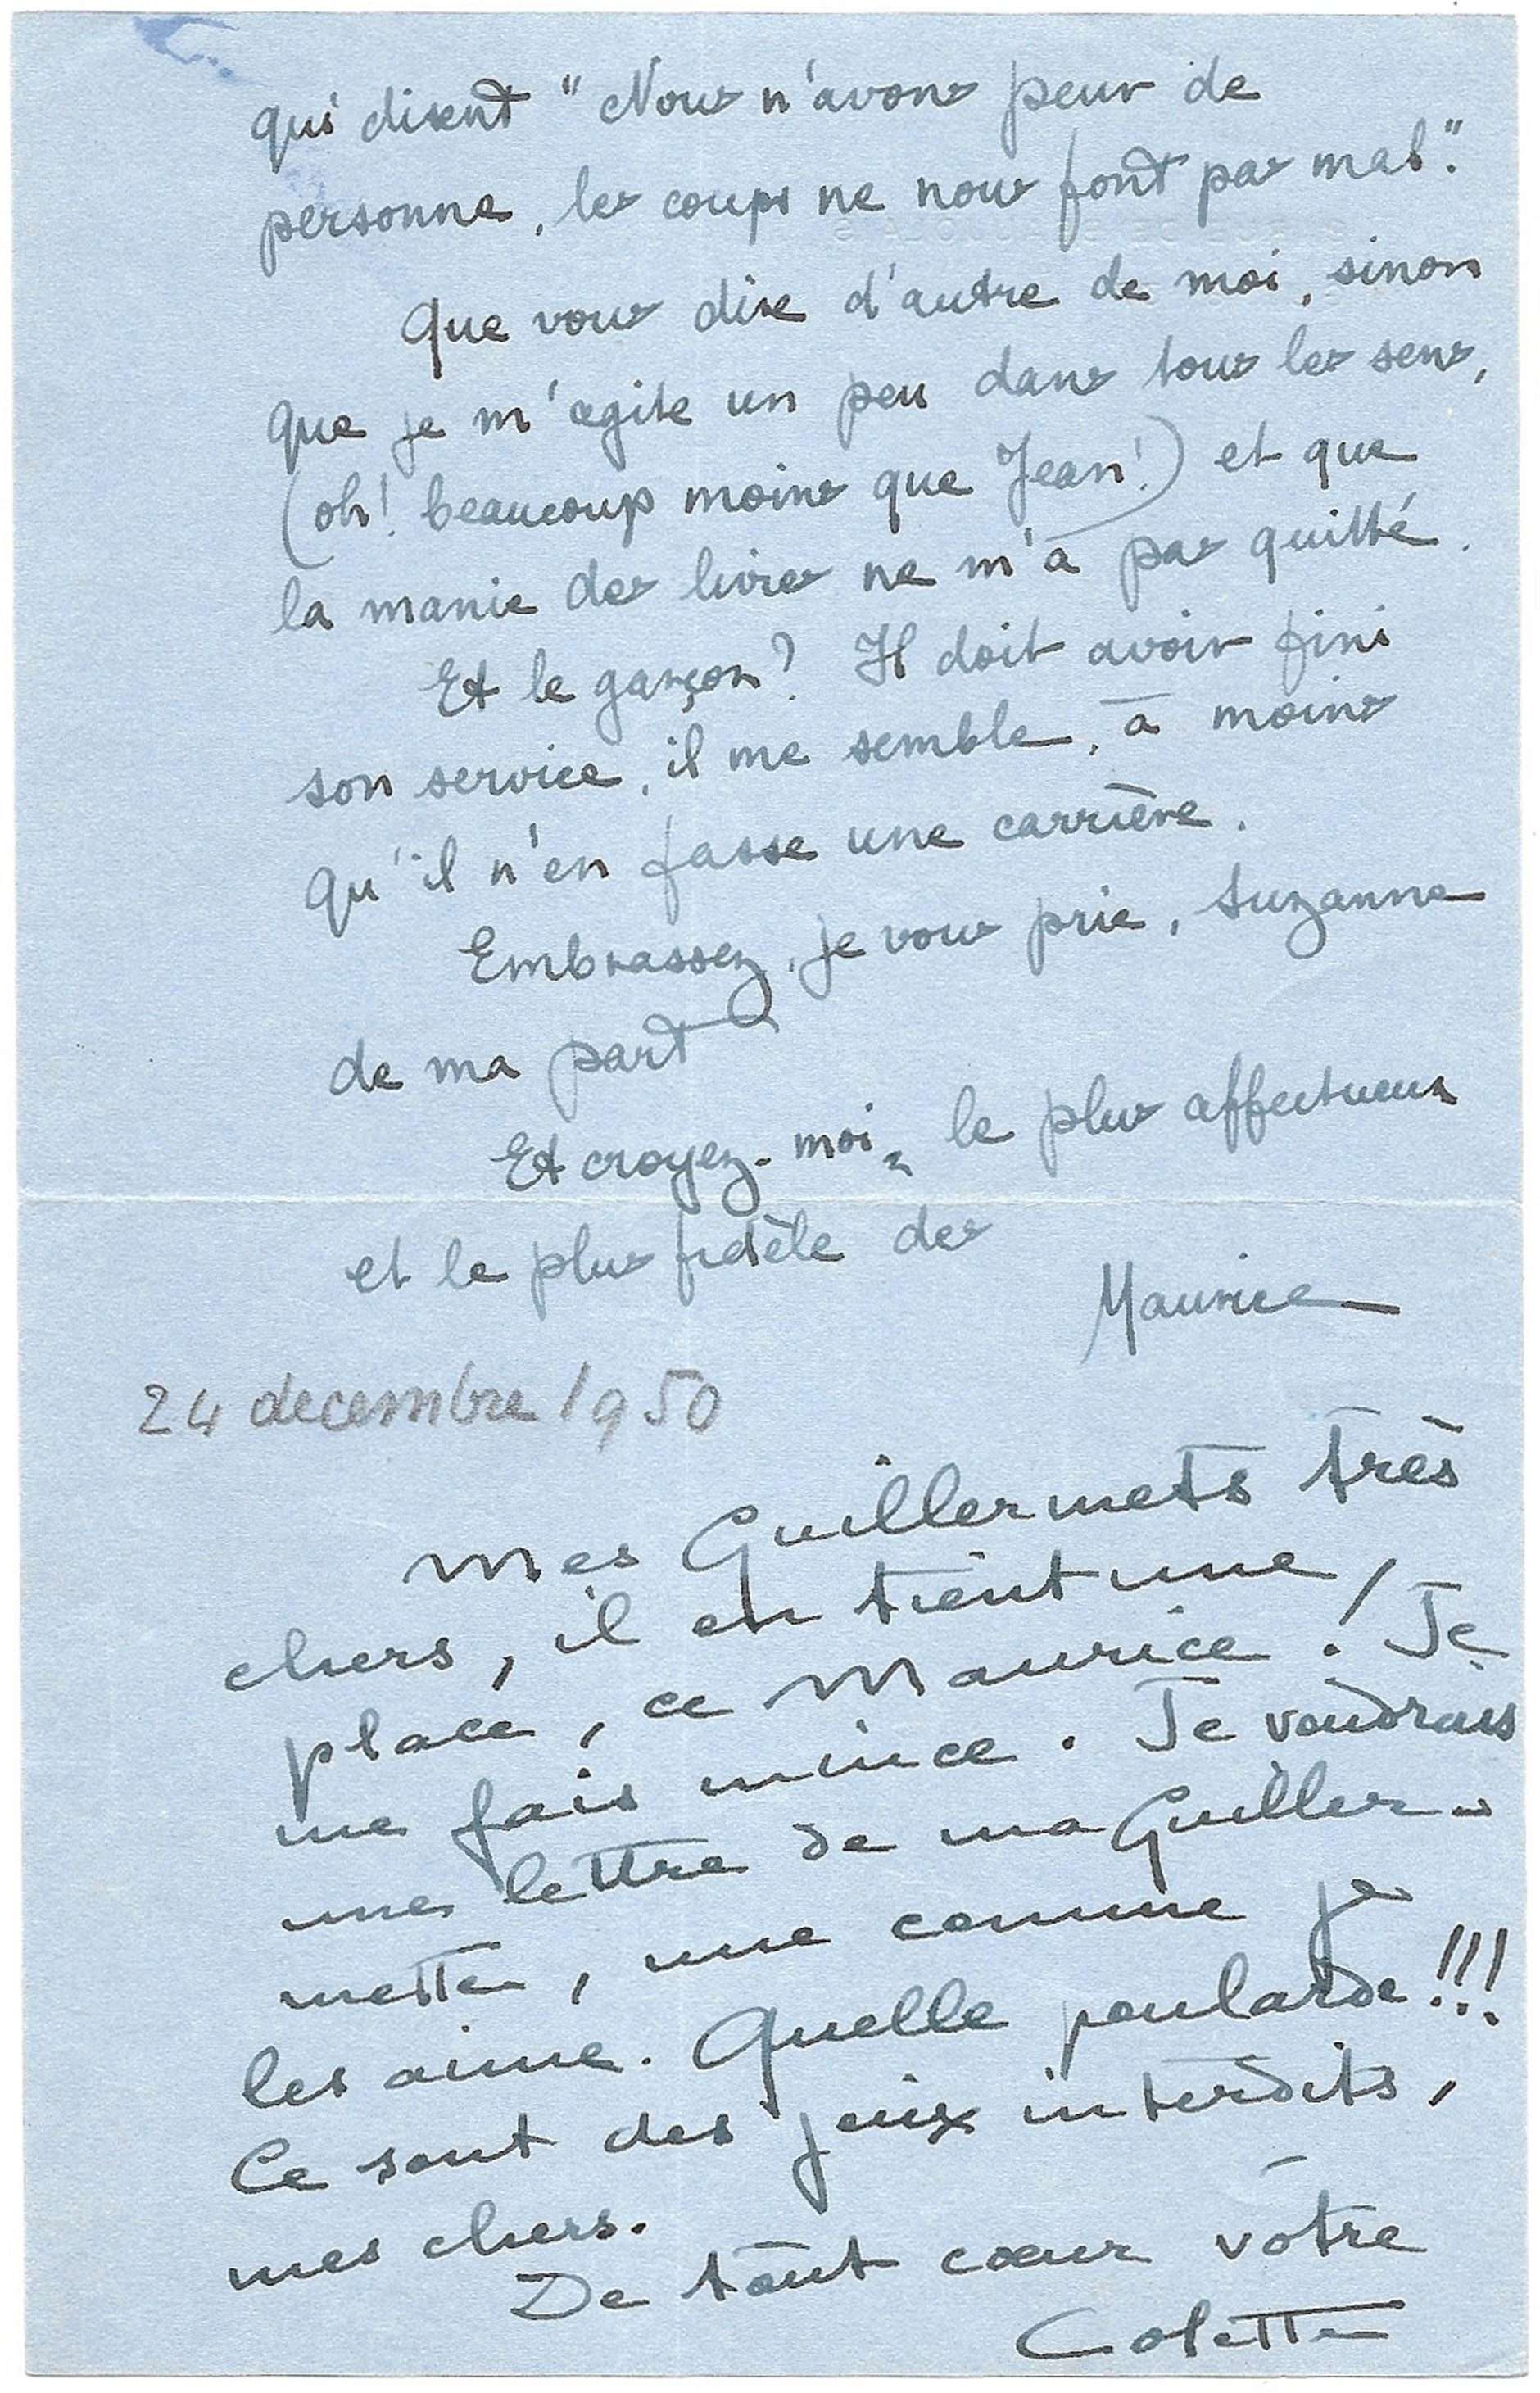 qui disent "Nous n'avons peur de
personne, les coups ne nous font pas mal".
Que vous dire d'autre de moi, sinon
que je m'agite un peu dans tous les sens,
(oh! beaucoup moins que Jean!) et que
la manie des livres ne m'a pas quitté.
Et le garçon? Il doit avoir fini
son service, il me semble, à moins
qu'il n'en fasse une carrière.
Embrassez, je vous prie, Suzanne
de ma part
Et croyez-moi, le plus affectueux
et le plus fidèle des
Maurice
24 decembre 1950
Mes Guillermets très
chers, il en tient une
place, ce Maurice! Je
me fais mince. Je voudrais
une lettre de ma Guiller-
mette, une comme je
les aime. Quelle poularde!!!
Ce sont des jeux interdits,
mes chers.
De tout cœur votre
Colette